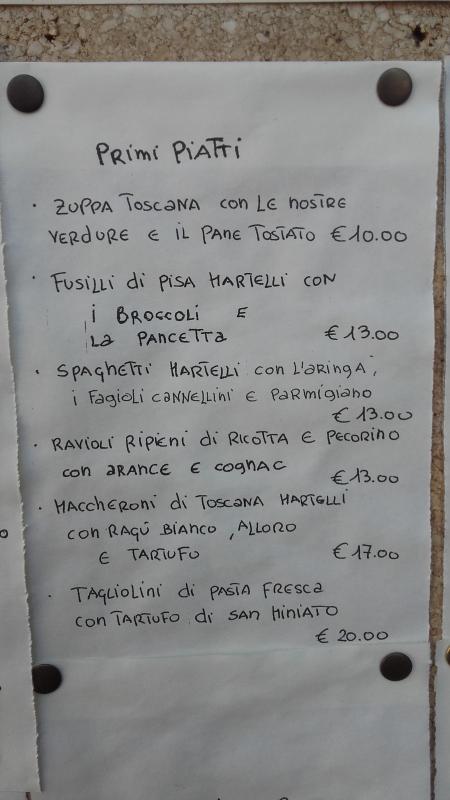 PRIMI PIATTI
· ZUPPA TOSCANA CON LE NOSTRE
VERDURE E IL PANE TOSTATO €10.00
· FUSILLI di PISA MARTELLI CON
i BROCCOLI E
LA PANCETTA €13.00
· SPAGHETTI MARTELLI CON L'ARINGA,
i FAGIOLI CANNELLINI E PARMIGIANO
€13.00
· RAVIOLI RIPIENI di RICOTTA E PECORINO
CON ARANCE E COGNAC
€13.00
· MACCHERONI di TOSCANA MARTELLI
CON RAGÚ BIANCO, ALLORO
E TARTUFO €17.00
· TAGLIOLINI di PASTA FRESCA
CON TARTUFO di SAN MINIATO
€ 20.00